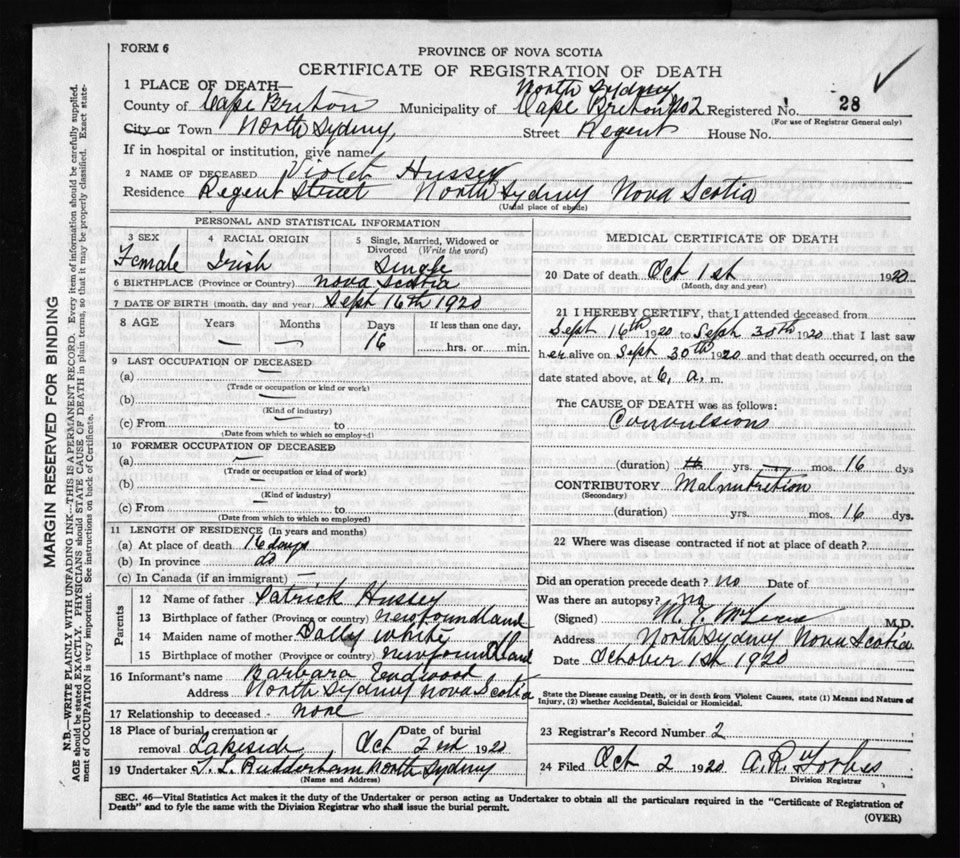 FORM 6
PROVINCE OF NOVA SCOTIA
CERTIFICATE OF REGISTRATION OF DEATH
1 PLACE OF DEATH—
North Sydney
County of Cape Breton Municipality of Cape Breton No2 Registered No. 28
(For use of Registrar General only)
City or Town North Sydney, Street Regent House No.
If in hospital or institution, give name
2 NAME OF DECEASED Violet Hussey
Residence Regent Street North Sydney Nova Scotia
(Usual place of abode)
PERSONAL AND STATISTICAL INFORMATION
3 SEX 4 RACIAL ORIGIN 5 Single, Married, Widowed or Divorced (Write the word)
Female Irish Single
6 BIRTHPLACE (Province or Country) Nova Scotia
7 DATE OF BIRTH (month, day and year) Sept 16th 1920
8 AGE Years Months Days If less than one day,
— — 16 hrs. or min.
9 LAST OCCUPATION OF DECEASED
(a) —
(Trade or occupation or kind of work)
(b) —
(Kind of industry)
(c) From — to
(Date from which to which so employed)
10 FORMER OCCUPATION OF DECEASED
(a) —
(Trade or occupation or kind of work)
(b) —
(Kind of industry)
(c) From — to
(Date from which to which so employed)
11 LENGTH OF RESIDENCE (In years and months)
(a) At place of death 16 days
(b) In province do
(c) In Canada (if an immigrant) —
Parents
12 Name of father Patrick Hussey
13 Birthplace of father (Province or country) Newfoundland
14 Maiden name of mother Dolly White
15 Birthplace of mother (Province or country) Newfoundland
16 Informant's name Barbara
Address North Sydney Nova Scotia
17 Relationship to deceased - none
18 Place of burial, cremation or removal Lakeside Date of burial Oct 2nd 1920
19 Undertaker T. L. Rudderham North Sydney
(Name and Address)
MEDICAL CERTIFICATE OF DEATH
20 Date of death Oct 1st 1920
(Month, day and year)
21 I HEREBY CERTIFY, that I attended deceased from
Sept 16th 1920 to Sept 30th 1920 that I last saw
her alive on Sept 30th 1920 and that death occurred, on the
date stated above, at 6, a, m.
The CAUSE OF DEATH was as follows:
Convulsions
(duration) yrs. — mos. 16 dys
CONTRIBUTORY Malnutrition
(Secondary)
(duration) yrs. mos. 16 dys.
22 Where was disease contracted if not at place of death?
Did an operation precede death? no Date of
Was there an autopsy? no
(Signed) M.D.
Address North Sydney Nova Scotia
Date October 1st 1920
State the Disease causing Death, or in death from Violent Causes, state (1) Means and Nature of
Injury, (2) whether Accidental, Suicidal or Homicidal.
23 Registrar's Record Number 2
24 Filed Oct 2 1920 Forbes
Division Registrar
SEC. 46—Vital Statistics Act makes it the duty of the Undertaker or person acting as Undertaker to obtain all the particulars required in the "Certificate of Registration of
Death" and to fyle the same with the Division Registrar who shall issue the burial permit.
(OVER)
MARGIN RESERVED FOR BINDING
N.B.—WRITE PLAINLY WITH UNFADING INK—THIS IS A PERMANENT RECORD. Every item of information should be carefully supplied.
AGE should be stated EXACTLY. PHYSICIANS should STATE CAUSE OF DEATH in plain terms, so that it may be properly classified. Exact state-
ment of OCCUPATION is very important. See instructions on back of Certificate.